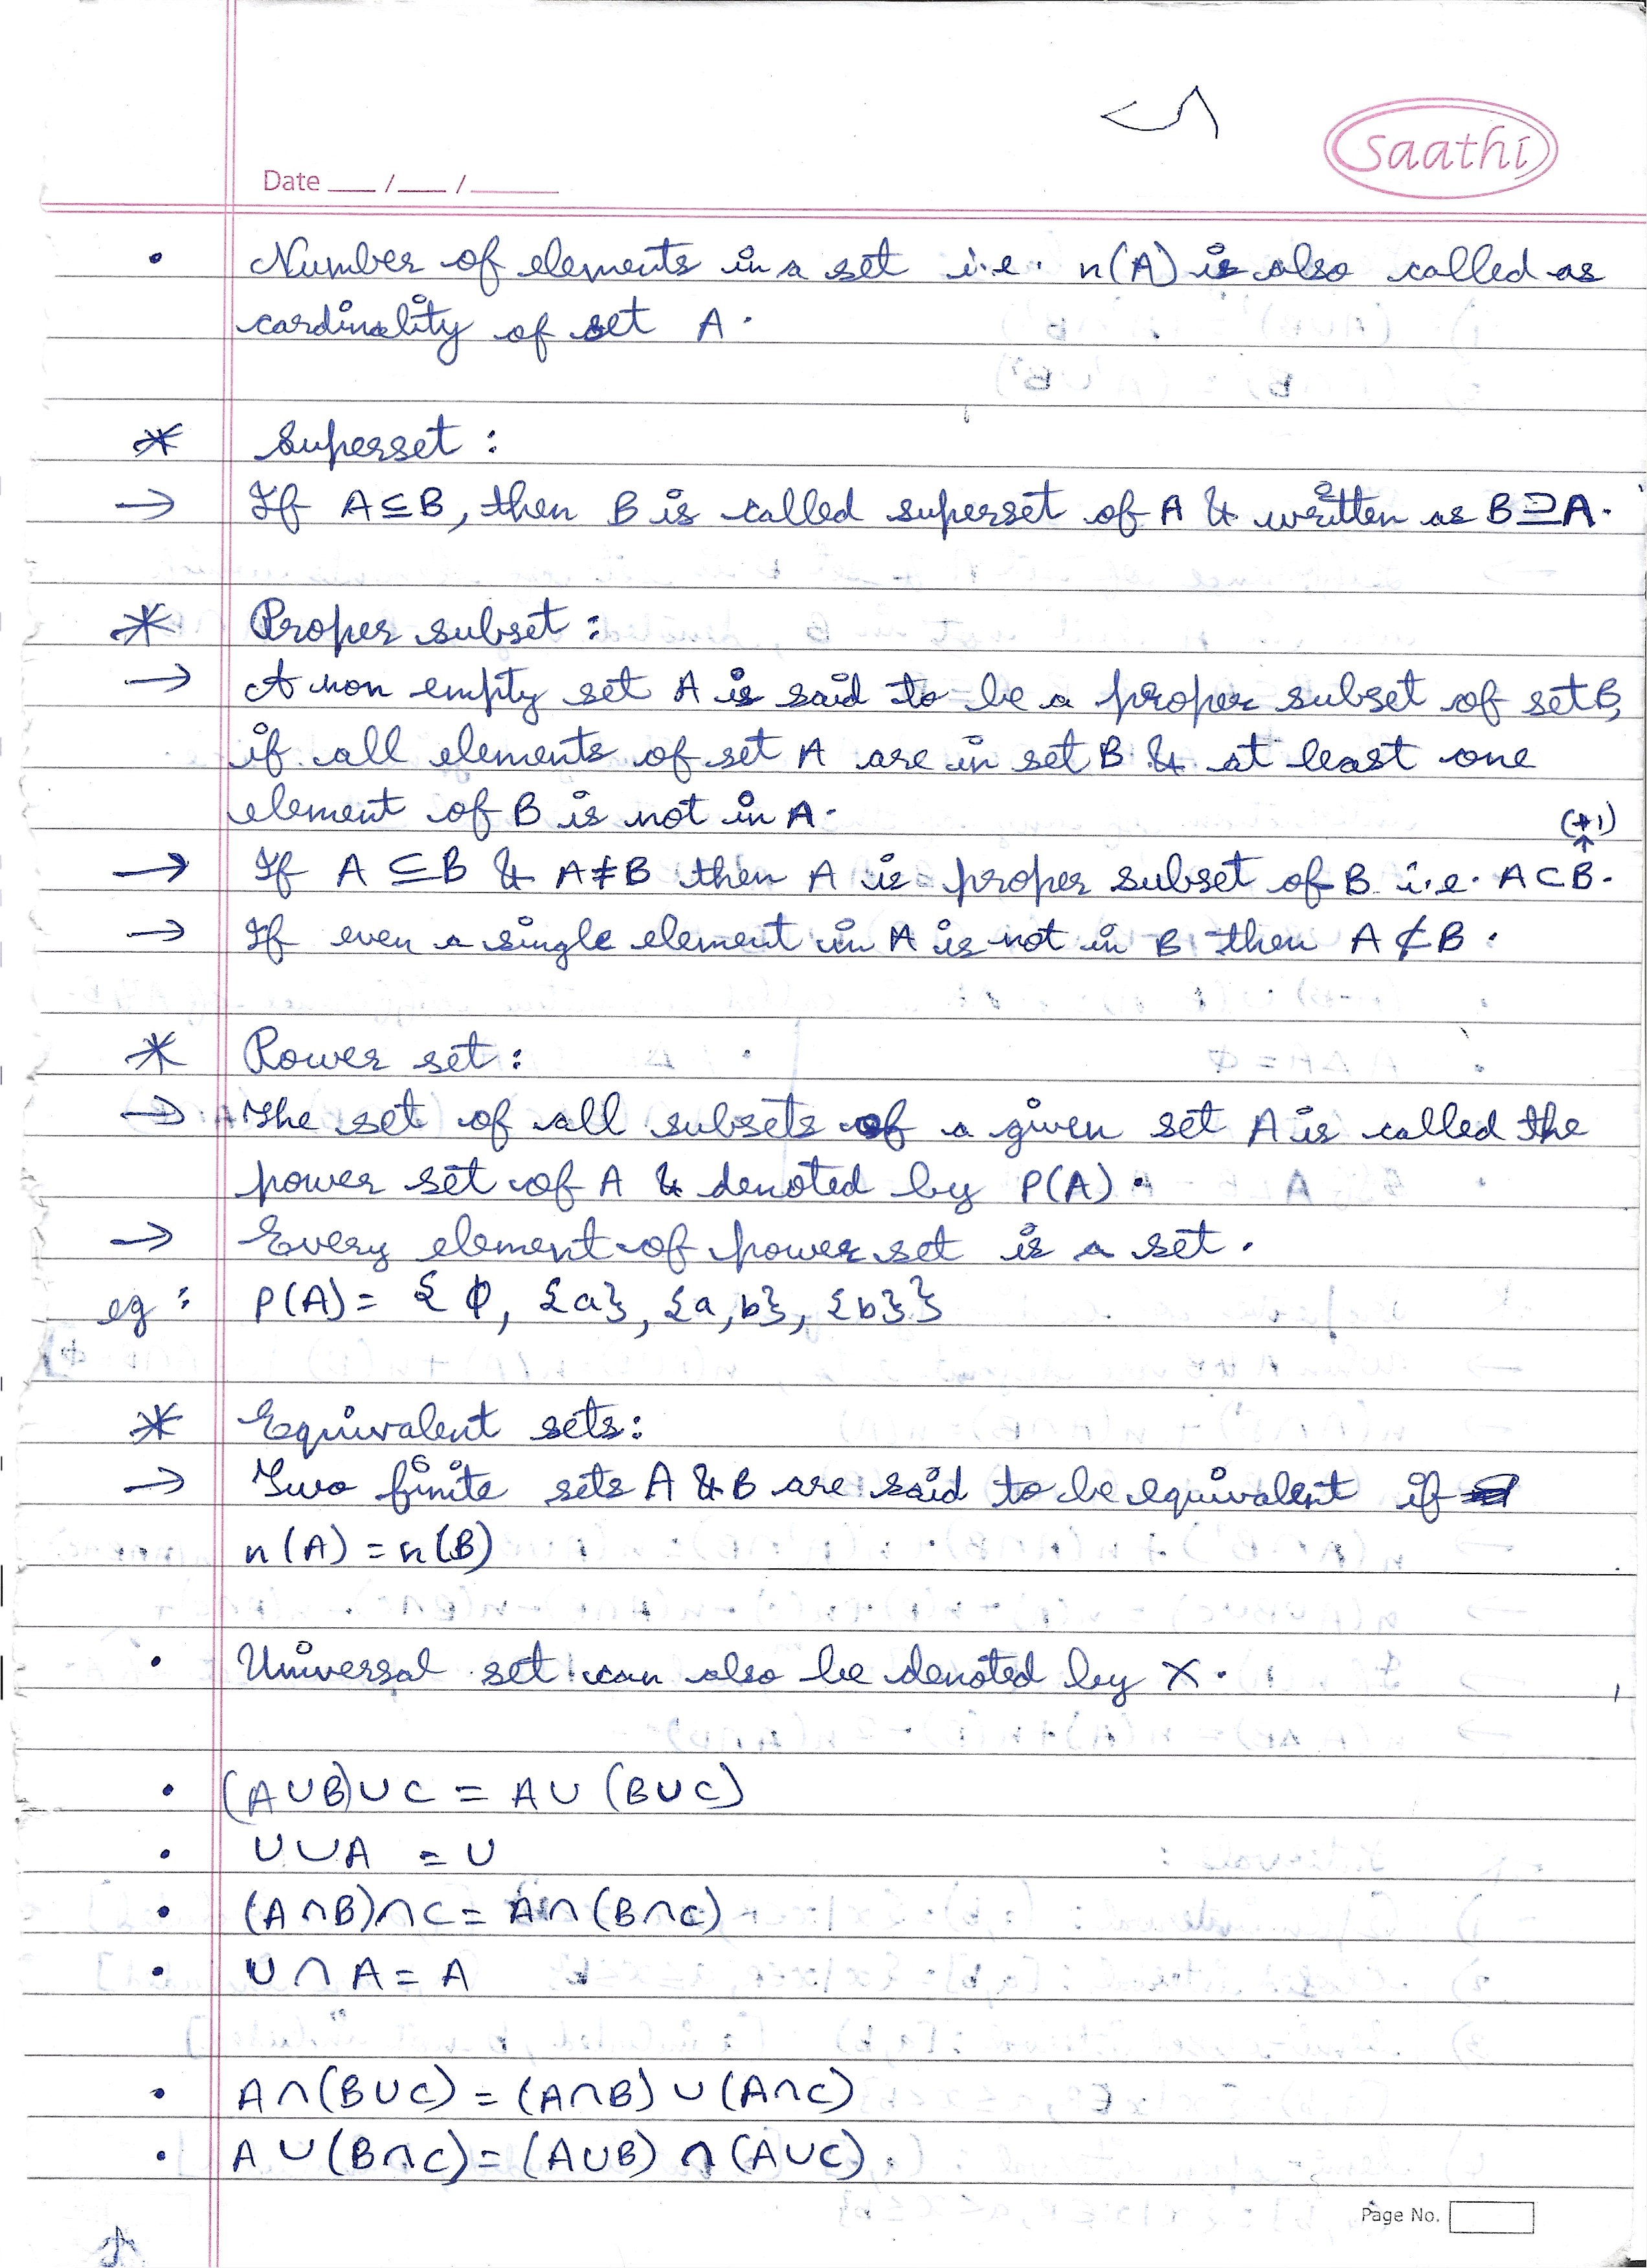 saathi
Date ___/___/______
• Number of elements in a set i.e. n(A) is also called as
cardinality of set A.
* Superset :
→ If A⊆B, then B is called superset of A & written as B⊇A.
* Proper subset :
→ A non empty set A is said to be a proper subset of set B,
if all elements of set A are in set B & at least one
element of B is not in A.
(+1)
↑
→ If A ⊆ B & A≠B then A is proper subset of B i.e. A⊂B.
→ If even a single element in A is not in B then A ⊄ B.
* Power set :
→ The set of all subsets of a given set A is called the
power set of A & denoted by P(A).
→ Every element of power set is a set.
eg : P(A) = { ϕ, {a}, {a,b}, {b}}
* Equivalent sets :
→ Two finite sets A & B are said to be equivalent if
n(A) = n(B)
• Universal set can also be denoted by X.
• (A∪B)∪C = A∪(B∪C)
• U∪A = U
• (A∩B)∩C = A∩(B∩C)
• U∩A = A
• A∩(B∪C) = (A∩B)∪(A∩C)
• A∪(B∩C) = (A∪B)∩(A∪C).
Page No.